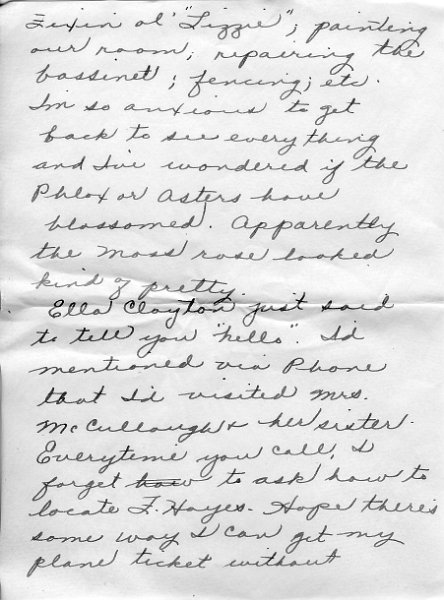 Fixin ol' "Lizzie"; painting
our room; repairing the
bassinet; fencing; etc.
I'm so anxious to get
back to see everything
and I've wondered if the
Phlox or Asters have
blossomed. Apparently
the Moss rose looked
kind of pretty.
Ella Clayton just said
to tell you "hello". I'd
mentioned via Phone
that I'd visited Mrs.
McCullough & her sister.
Everytime you call, I
forget how to ask how to
locate F. Hayes. Hope there's
some way I can get my
plane ticket without